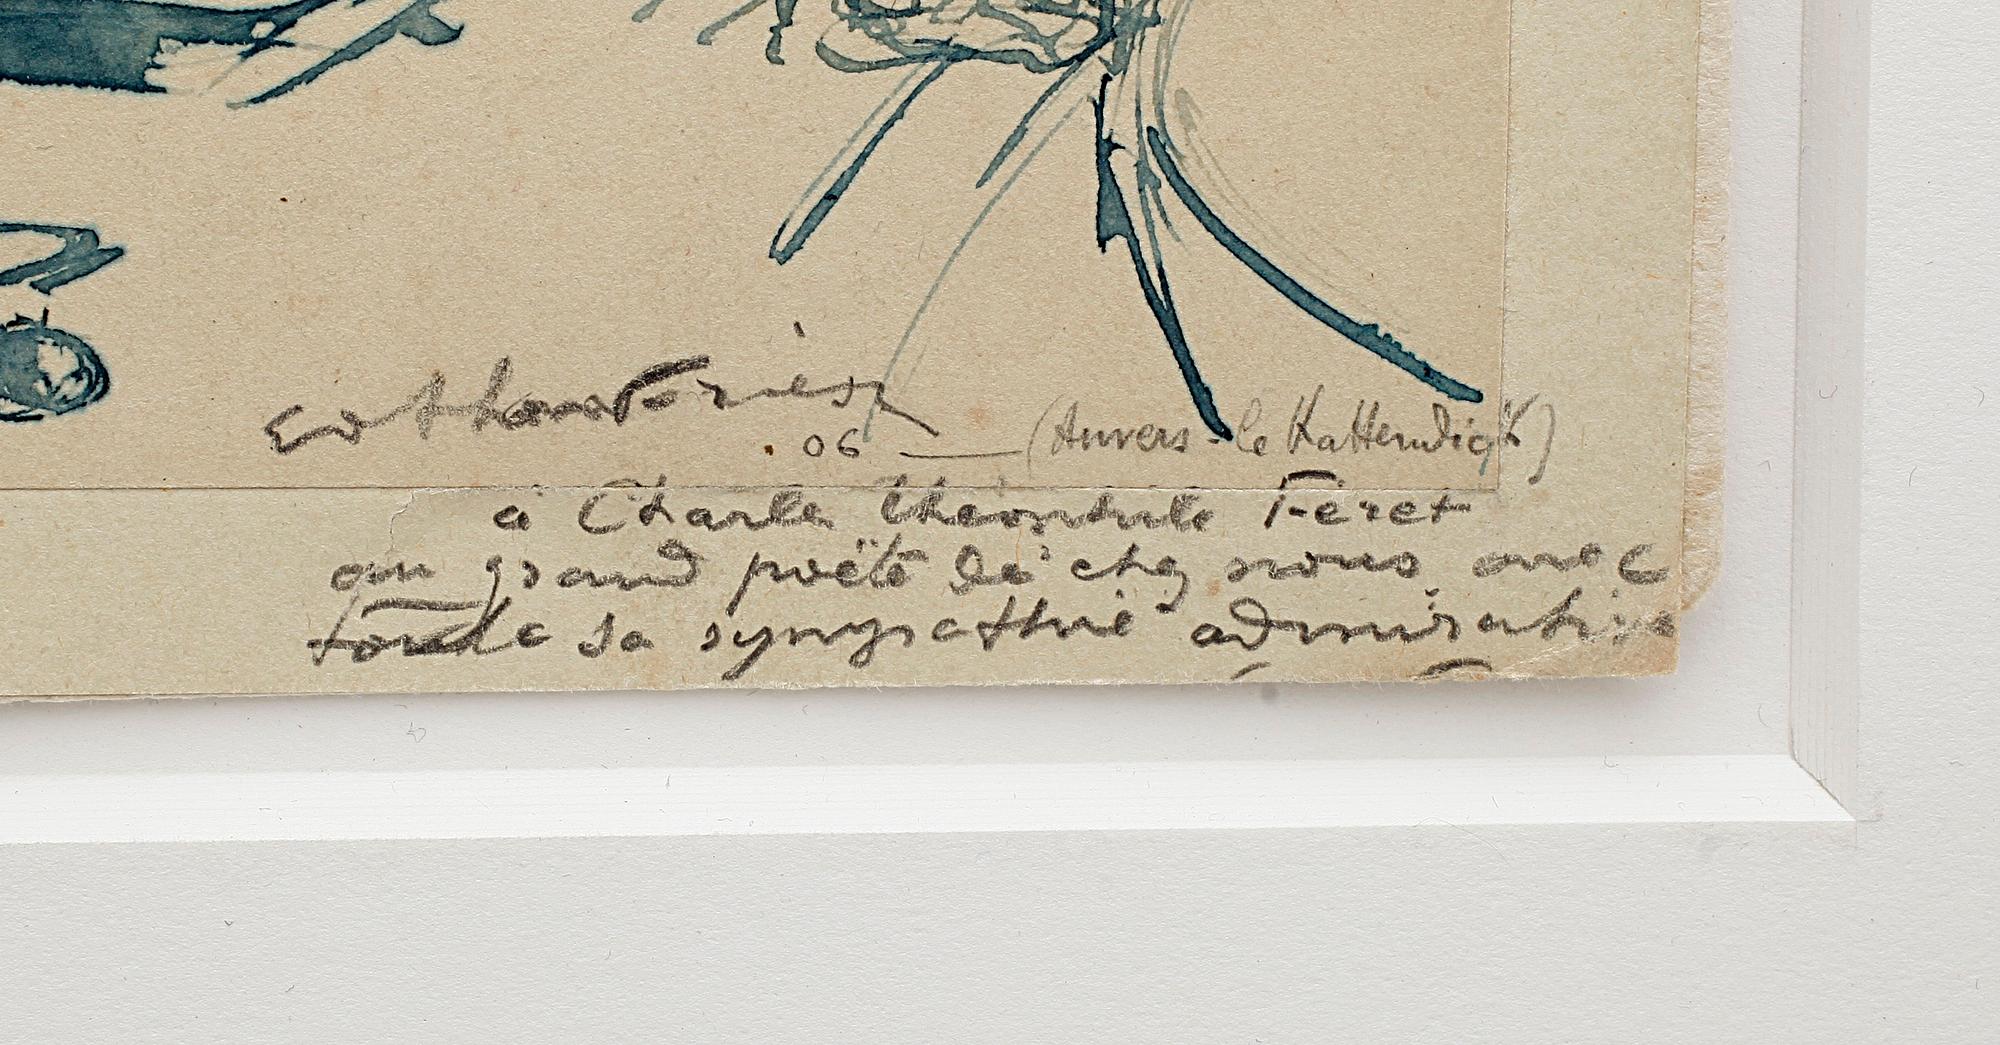 E Othon Friesz
06 — (Anvers - le Kattendigk)
à Charles Théophile Féret
au grand poëte de chez nous avec
toute sa sympathie admirative